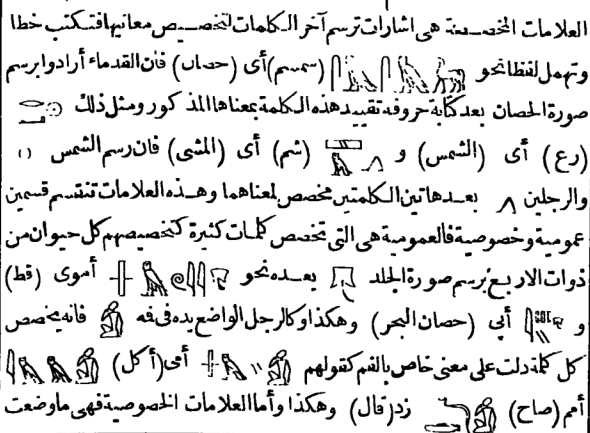 العلامات المخصصة هى اشارات ترسم آخر الكلمات لتخصيص معانيها فتكتب خطا
وتهمل لفظا نحو (سمسم) أى (حصان) فان القدماء أرادوا برسم
صورة الحصان بعد كتابة حروفه تقييد هذه الكلمة بمعناها المذكور ومثل ذلك
(رع) أى (الشمس) و (شم) أى (المشى) فان رسم الشمس
والرجلين بعد هاتين الكلمتين مخصص لمعناهما وهذه العلامات تنقسم قسمين
عمومية وخصوصية فالعمومية هى التى تخصص كلمات كثيرة كتخصيصهم كل حيوان من
ذوات الاربع برسم صورة الجلد بعده نحو أموى (قط)
و أبى (حصان البحر) وهكذا وكالرجل الواضع يده فى فه فانه يخصص
كل كلمة دلت على معنى خاص بالفم كقولهم أمى (أكل)
أمم (صاح) زد (قال) وهكذا وأما العلامات الخصوصية فهى ما وضعت